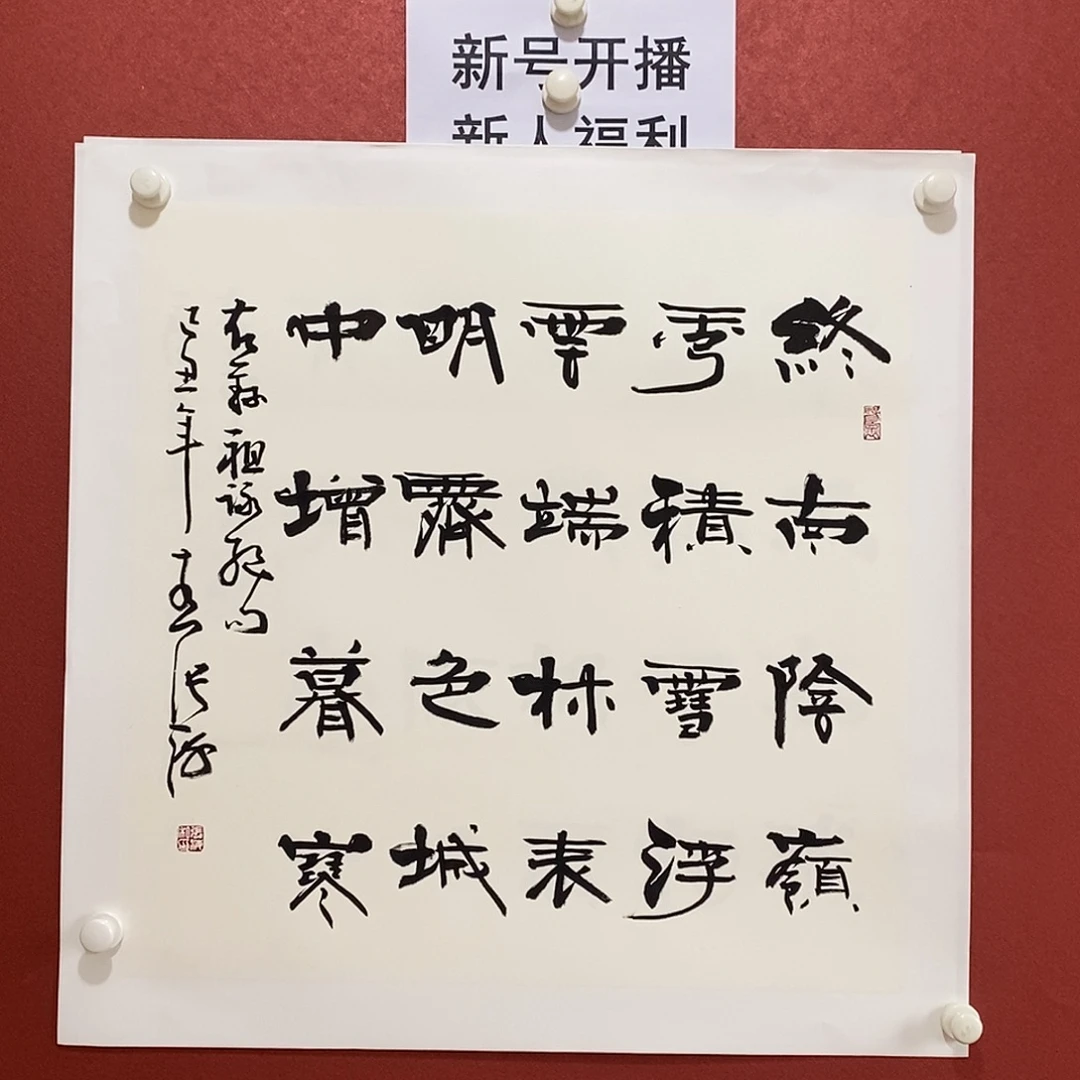 新号开播
新人福利
終南陰嶺
秀積雪浮
雲端林表
明霽色城
中增暮寒
右錄祖詠絕句
己丑年 張海